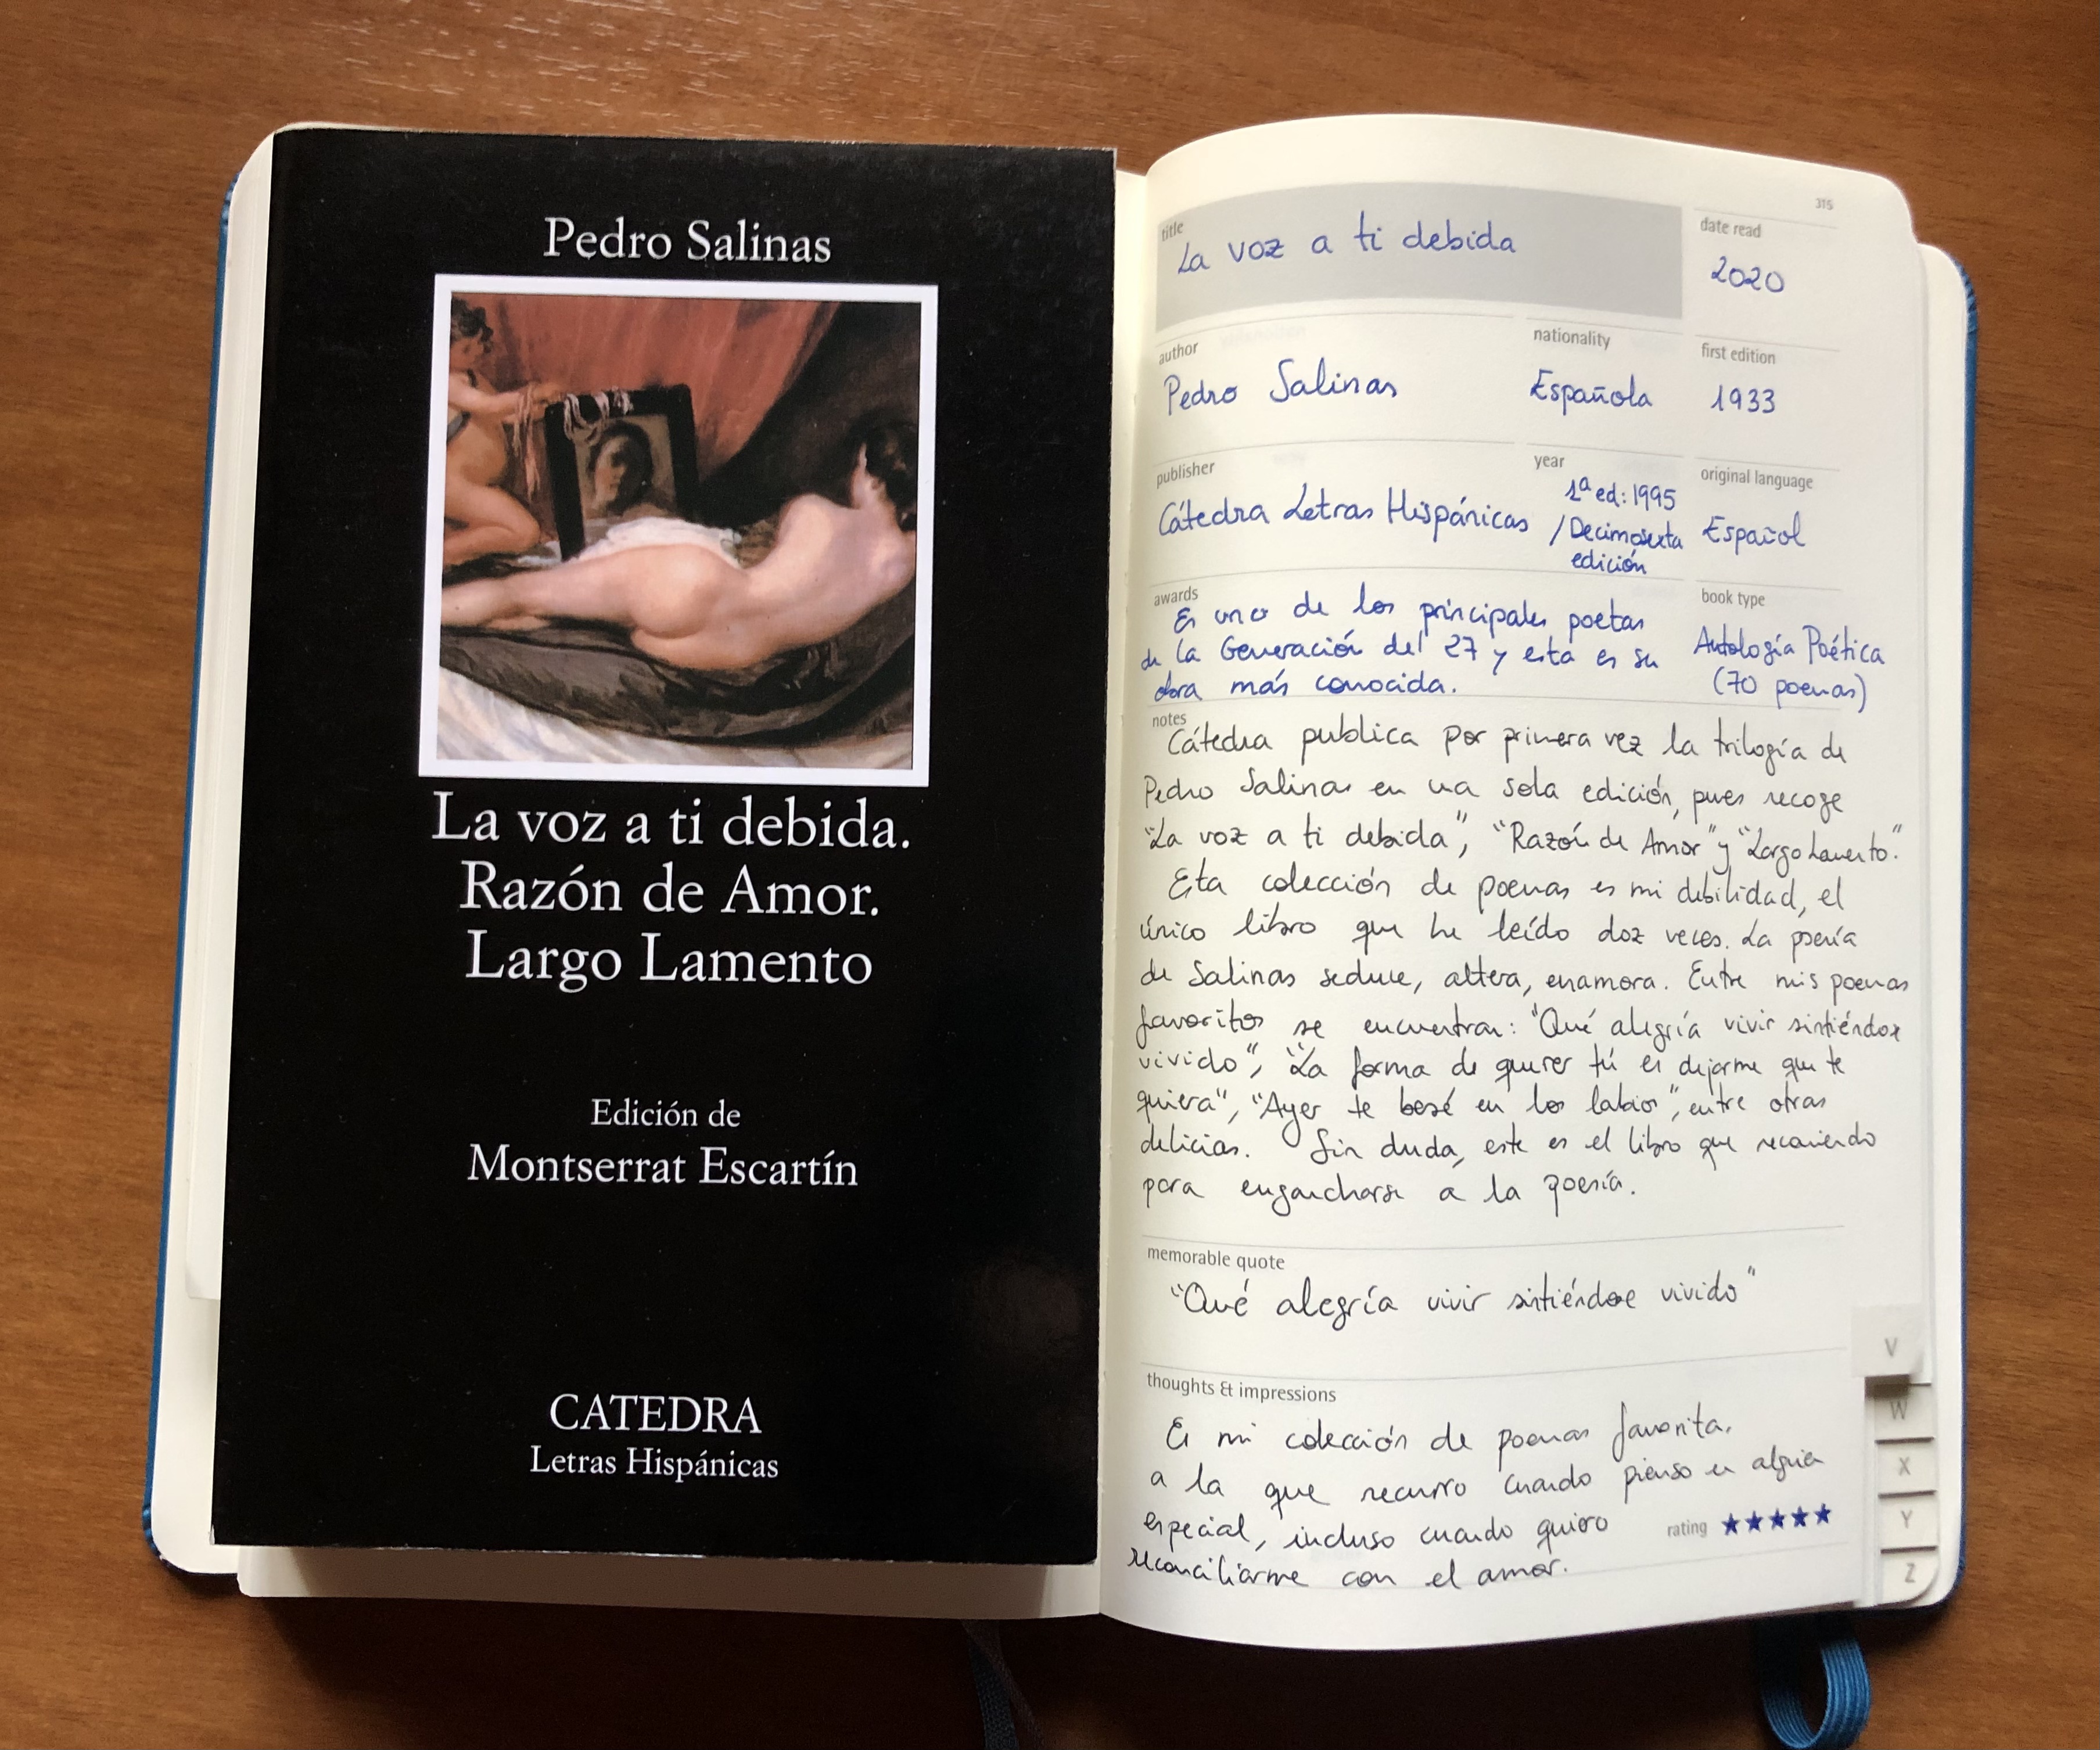 Pedro Salinas
La voz a ti debida.
Razón de Amor.
Largo Lamento
Edición de
Montserrat Escartín
CATEDRA
Letras Hispánicas
315
title
La voz a ti debida
date read
2020
author
Pedro Salinas
nationality
Española
first edition
1933
publisher
Cátedra Letras Hispánicas
year
1ª ed: 1995
/ Decimosexta
edición
original language
Español
awards
Es uno de los principales poetas
de la Generación del 27 y esta es su
obra más conocida.
book type
Antología Poética
(70 poemas)
notes
Cátedra publica por primera vez la trilogía de
Pedro Salinas en una sola edición, pues recoge
"La voz a ti debida", "Razón de Amor" y "Largo Lamento."
Esta colección de poemas es mi debilidad, el
único libro que he leído doz veces. La poesía
de Salinas seduce, altera, enamora. Entre mis poemas
favoritos se encuentran: "Qué alegría vivir sintiéndose
vivido", "La forma de querer tú es dejarme que te
quiera", "Ayer te besé en los labios", entre otras
delicias. Sin duda, este es el libro que recomiendo
para engancharse a la poesía.
memorable quote
"Qué alegría vivir sintiéndose vivido"
thoughts & impressions
Es mi colección de poemas favorita.
a la que recurro cuando pienso en alguien
especial, incluso cuando quiero
reconciliarme con el amor.
rating ★★★★★
V
W
X
Y
Z